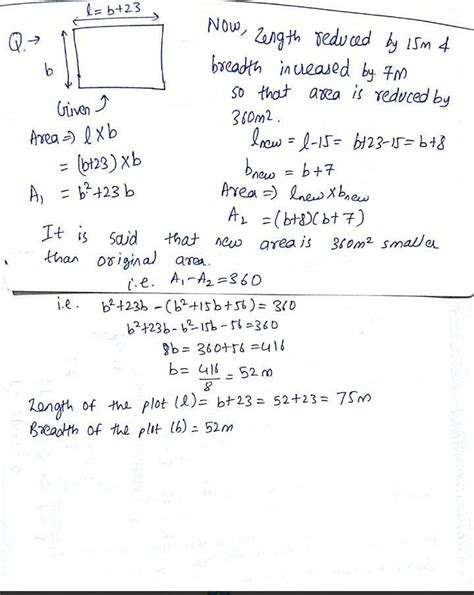 Q.→
l = b+23
b
Given
Area ⇒ l×b
= (b+23)×b
A₁ = b²+23b
Now, Length reduced by 15m &
breadth increased by 7M
so that area is reduced by
360m².
lnew = l-15 = b+23-15 = b+8
bnew = b+7
Area ⇒ lnew × bnew
A₂ = (b+8)(b+7)
It is said that new area is 360m² smaller
than original area.
i.e. A₁-A₂ = 360
i.e. b²+23b - (b²+15b+56) = 360
b²+23b-b²-15b-56 = 360
8b = 360+56 = 416
b = 416/8 = 52m
Length of the plot (l) = b+23 = 52+23 = 75m
Breadth of the plot (b) = 52m